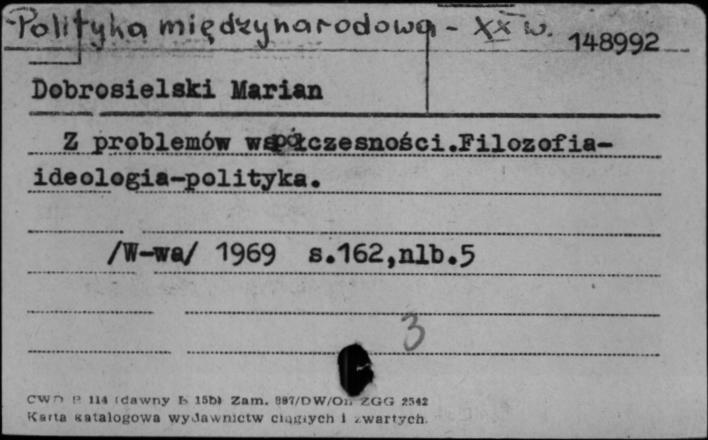 Polityka międzynarodowa - XX w.
148992
Dobrosielski Marian
Z problemów współczesności.Filozofia-
ideologia-polityka.
/W-wa/ 1969 s.162,nlb.5
3
114 (dawny 15b) Zam. 887/DW/On ZGG 2542
Karta katalogowa wydawnictw ciągłych i zwartych.